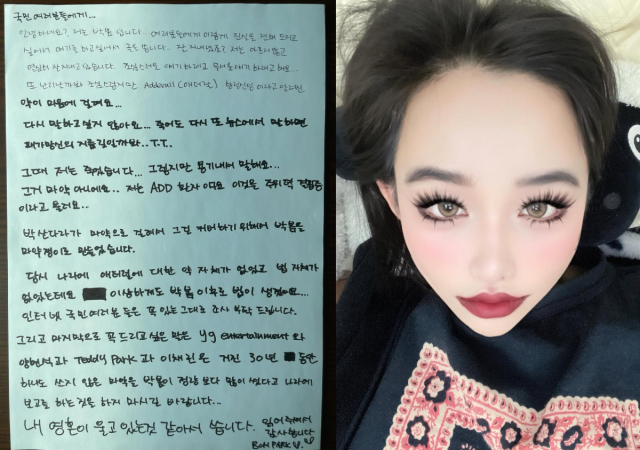 국민 여러분들에게...
안녕하세요? 저는 박봄 입니다. 여러분들에게 이렇게 진실을 전해 드리고
싶어서 얘기를 하고싶어서 글을 씁니다. 잘 지내셨죠? 저는 아픈데없고
열심히 잘지내고 있습니다. 조심스러운 얘기 하려고
또 난리날까봐 조심스럽지만 Adderall (애더럴) 향정신성 이라고 알려진
약이 마음에 걸려요...
다시 말하고싶지 않아요... 죽어도 다시 또 뉴스에서 말하면
패가망신의 지름길일까봐.. T.T.
그때 저는 죽었습니다... 그렇지만 용기내서 말해요...
그거 마약 아니에요.. 저는 ADD 환자 이고요 이것은 주의력 결핍증
이라고 불려요..
박산다라가 마약으로 걸려서 그걸 커버하기 위해서 박봄을
마약쟁이로 만들었습니다.
당시 나라에 애더럴에 대한 약 자체가 없었고 법 자체가
없었는데요 이상하게도 박봄 이후로 법이 생겼어요...
인터넷 국민여러분들은 꼭 있는 그대로 조사 부탁드립니다.
그리고 마지막으로 꼭 드리고 싶은 말은 yg entertainment 와
양현석과 Teddy Park 과 이채린은 거진 30년 동안
하나도 쓰지 않은 마약을 박봄이 정량 보다 많이 썼다고 나라에
보고를 하는것을 하지 마시길 바랍니다...
내 영혼이 울고 있는것 같아서 씁니다. 읽어주셔서
감사합니다
BOM PARK